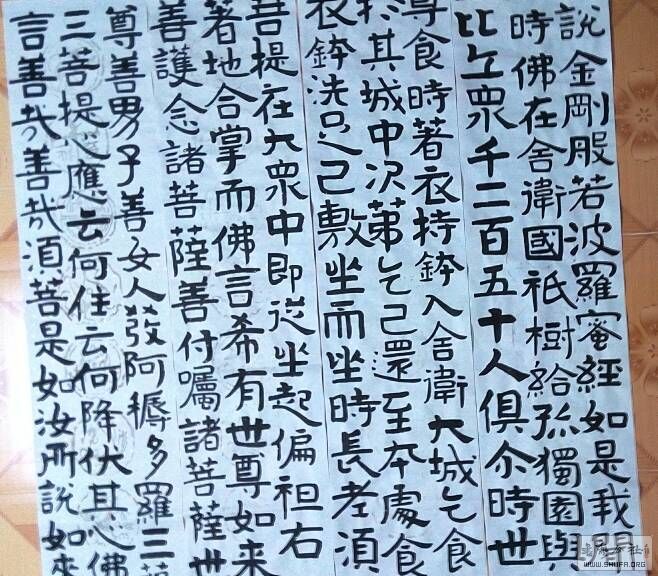 說金剛般若波羅蜜經如是我
時佛在舍衛國祇樹給孤獨園與
比丘眾千二百五十人俱尒時世
尊食時著衣持鉢入舍衛大城乞食
於其城中次第乞已還至本處食
衣鉢洗足已敷坐而坐時長老須
菩提在大眾中即從坐起偏袒右
著地合掌而佛言希有世尊如來
善護念諸菩薩善付囑諸菩薩世
尊善男子善女人發阿耨多羅三
三菩提心應云何住云何降伏其心佛
言善哉善哉須菩是如汝所說如來
WWW.SHUFA.ORG